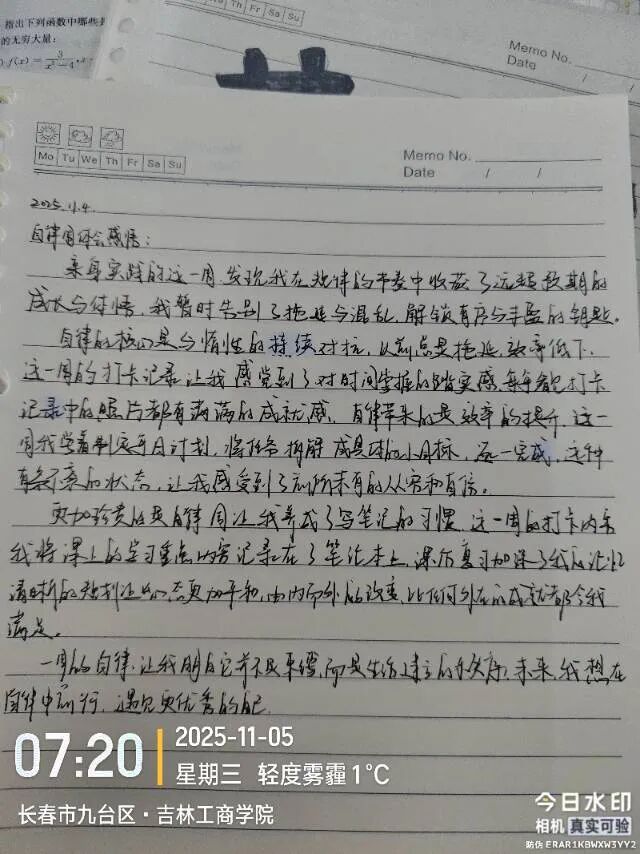 指出下列函数中哪些是
的无穷大量：
f(x) = 3/(x²-4),
Th Fr Sa Su
Memo No.
Date / /
Mo Tu We Th Fr Sa Su
Memo No.
Date / /
2025.11.4.
自律周体会感悟：
亲身实践的这一周，发现我在规律的节奏中收获了远超预期的
成长与体悟，我暂时告别了拖延与混乱，解锁有序与丰盈的钥匙。
自律的核心是与惰性的持续对抗，以前总是拖延，效率低下，
这一周的打卡记录让我感觉到了对时间掌握的踏实感，每每翻打卡
记录中的照片都有满满的成就感，自律带来的是效率的提升，这一
周我学着制定每日计划，将任务拆解成具体的小目标，逐一完成，这种
有条不紊的状态，让我感受到了前所未有的从容和自信。
更加珍贵的是自律周让我养成了写笔记的习惯，这一周的打卡内容
我将课上的学习重点内容记录在了笔记本上，课后复习加深了我的记忆
清晰的规划让心态更加平和，由内而外的改变，比任何外在的成就都令我
满足。
一周的自律，让我明白它并不是束缚，而是生活建立的秩序，未来，我想在
自律中前行，遇见更优秀的自己
07:20
2025-11-05
星期三 轻度雾霾 1°C
长春市九台区·吉林工商学院
今日水印
相机 真实可验
防伪 ERAR1KBWXW3YY2